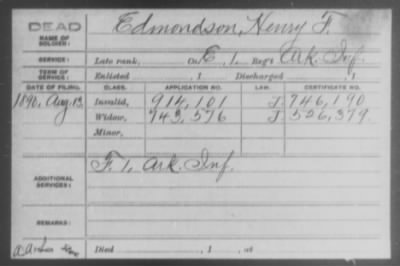 DEAD
NAME OF SOLDIER: Edmondson, Henry F.
SERVICE: Late rank, Co. E, 1, Reg't Ark. Inf.
TERM OF SERVICE: Enlisted , 1 Discharged , 1
DATE OF FILING. CLASS. APPLICATION NO. LAW. CERTIFICATE NO.
1890, Aug. 13. Invalid, 914,101 J. 746,190
Widow, 743,576 J. 526,379
Minor,
ADDITIONAL SERVICES: F. 1, Ark. Inf.
REMARKS:
Died , 1 , at